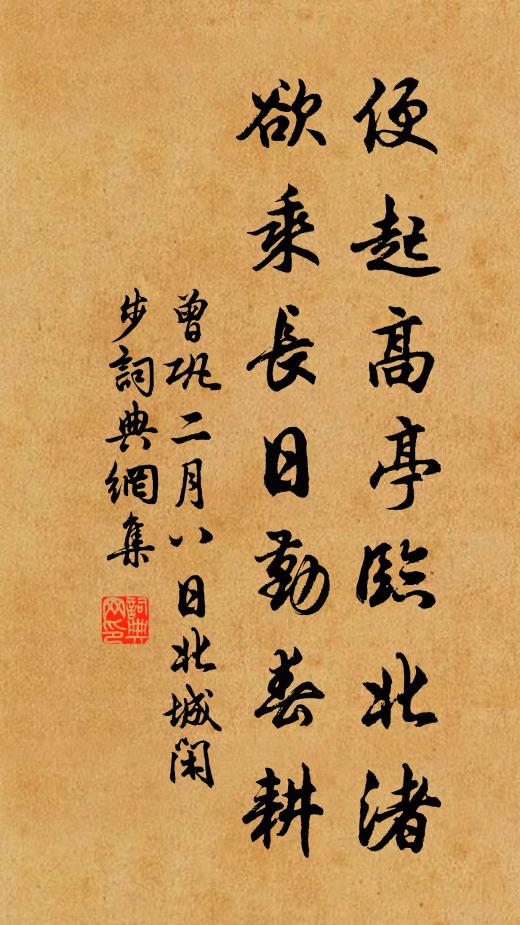 便起高亭臨北渚
欲乘長日勤春耕
曾巩二月八日北城閑
步詞典網集
詞典
网印